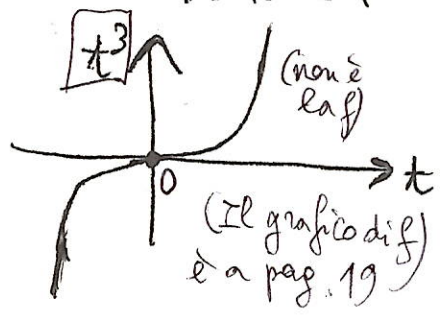 t³
(non è
la f)
t
0
(Il grafico di f
è a pag. 19)